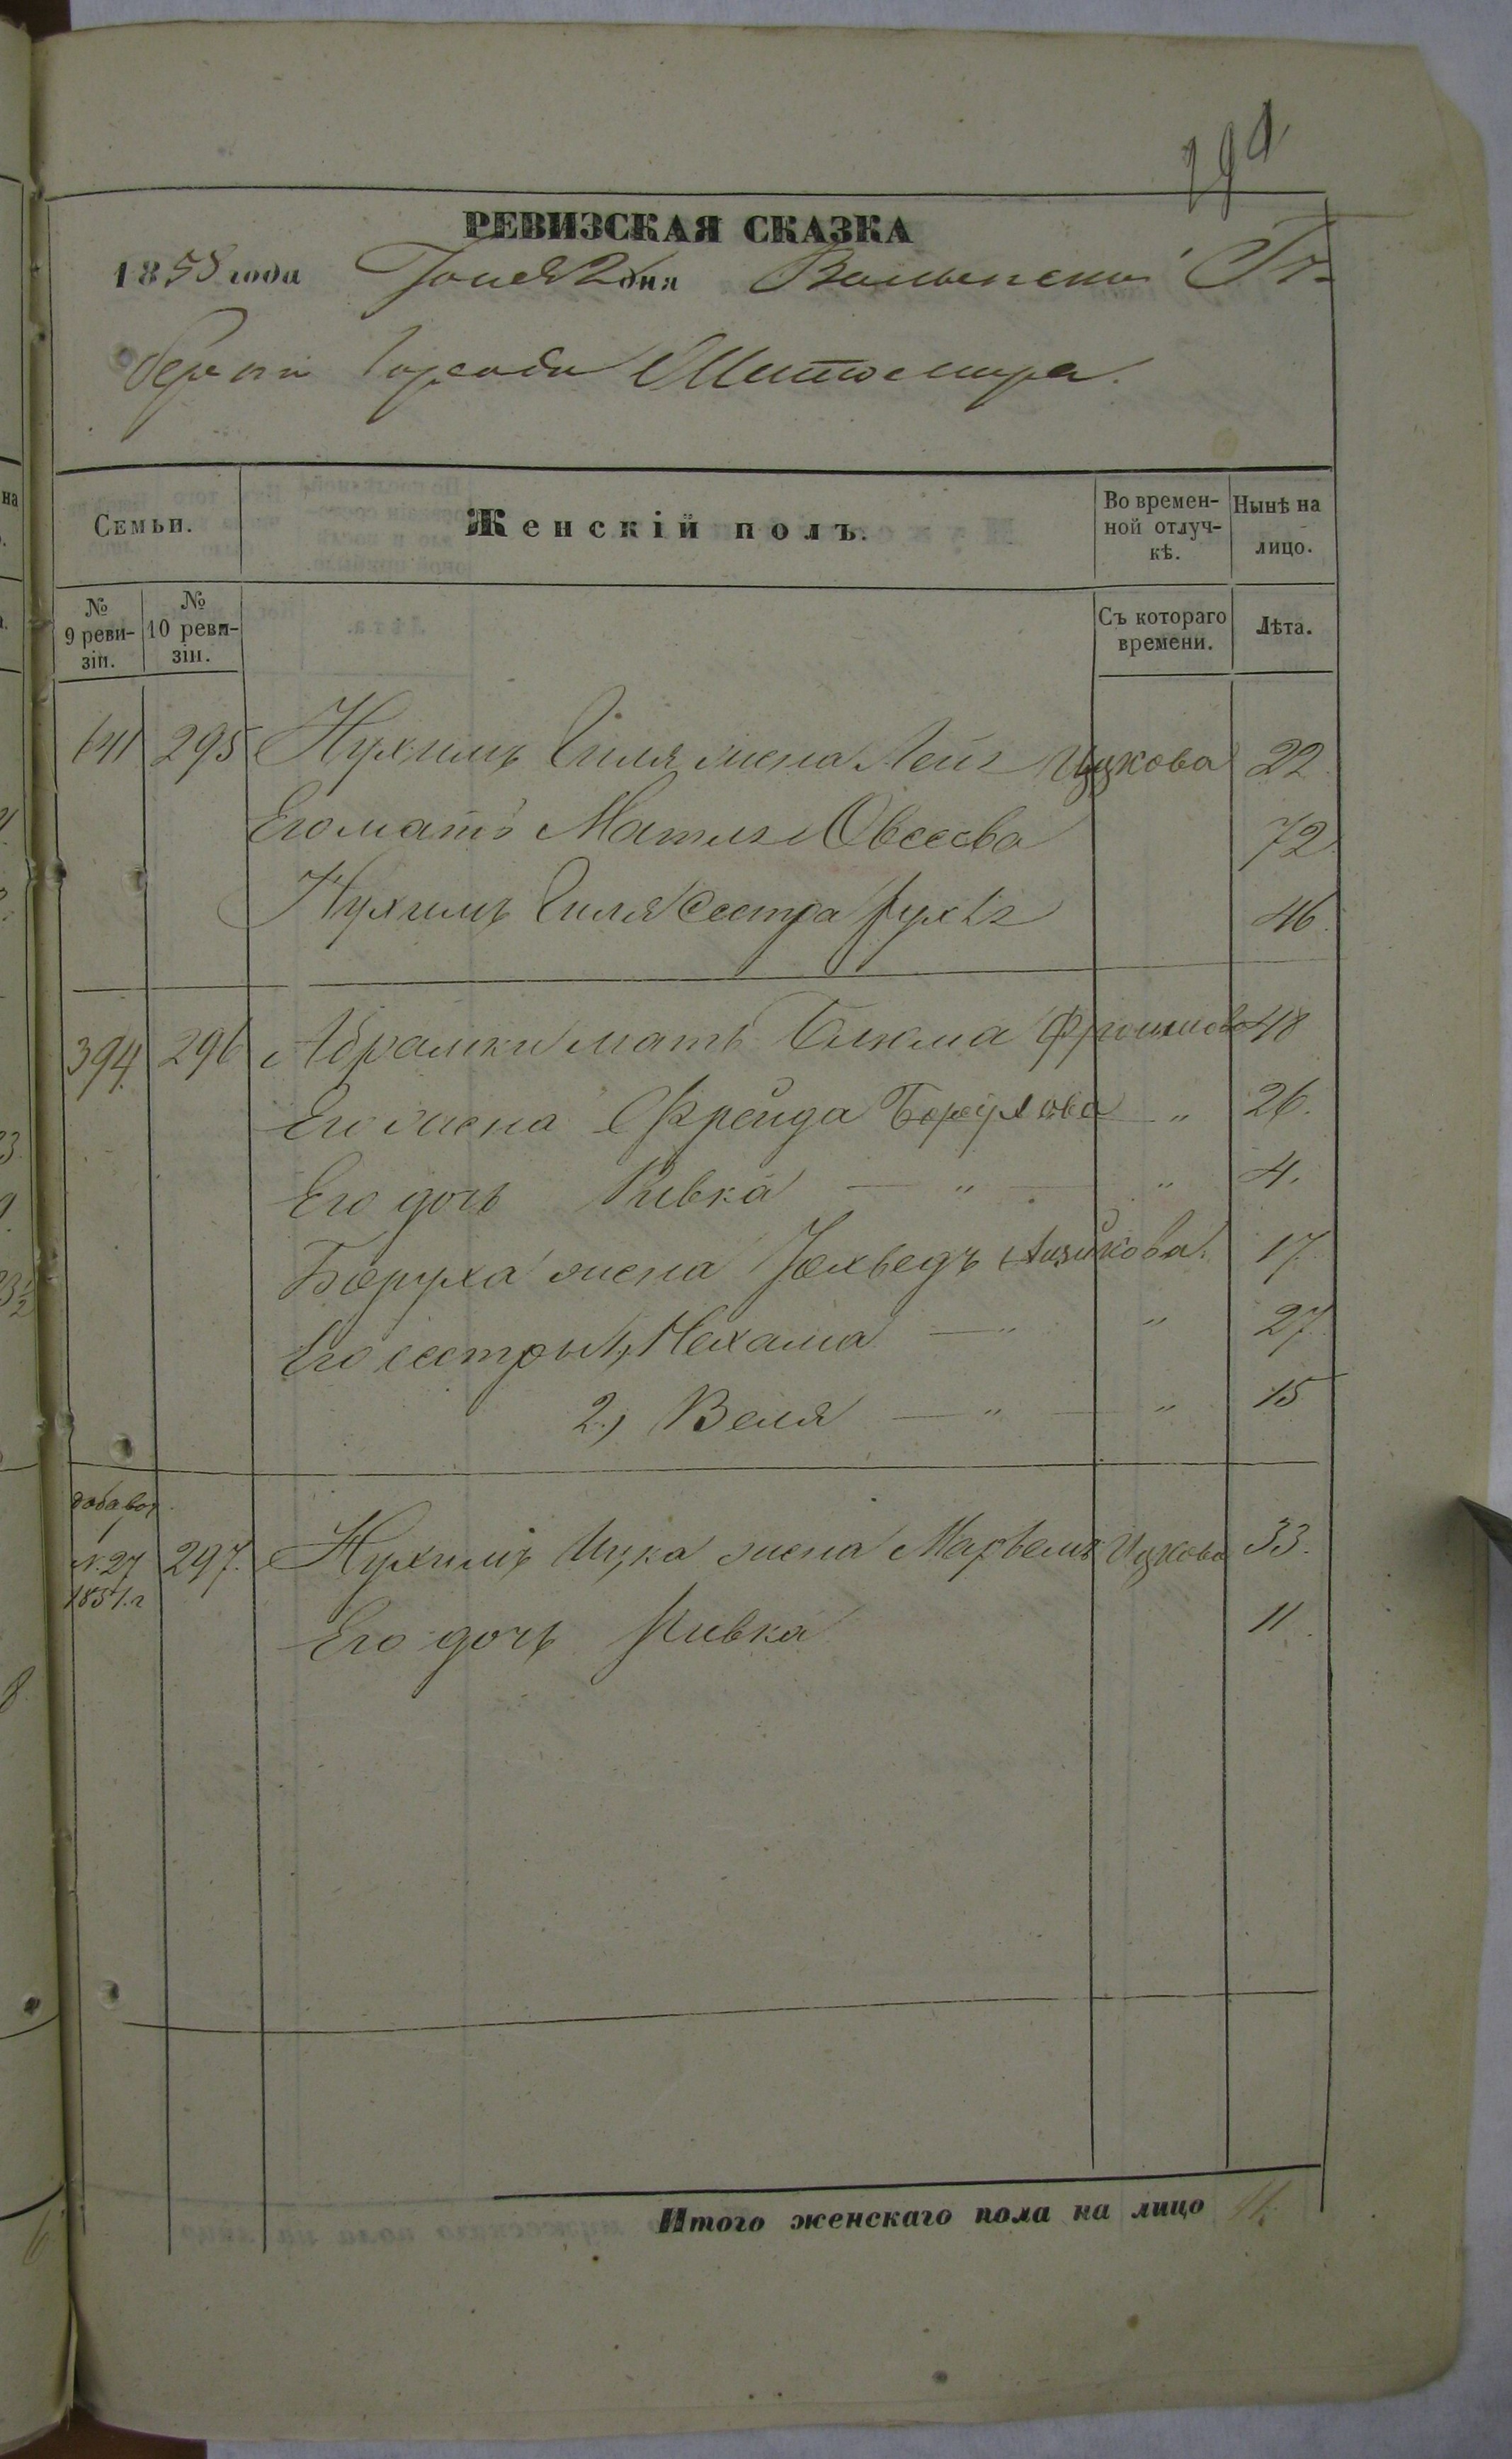 РЕВИЗСКАЯ СКАЗКА
1858 года Іюня 2 дня Волынской Гу-
берніи Города Житомира.
Семьи.
Женскій полъ.
Во времен-
ной отлуч-
кѣ.
Нынѣ на
лицо.
№
9 реви-
зіи.
№
10 реви-
зіи.
Съ котораго
времени.
Лѣта.
641 295 Нухимъ Гиля жена Лея Ицкова 22
Его мать Матля Овсеева 72
Нухимъ Гиля сестра Рухля 46.
394. 296 Абрамки мать Блюма Фроимова 48
Его жена Фрейда Борухова " 26.
Его дочь Ривка — " — " 4.
Боруха жена Іохведъ Айзикова. 17
Его сестры 1, Нехама — " " 27
2, Веля — " — " 15
добавоч.
N. 27 297. Нухимъ Ицка жена Ицкова 33.
1851. г
Его дочь Ривка 11.
Итого женскаго пола на лицо 11.